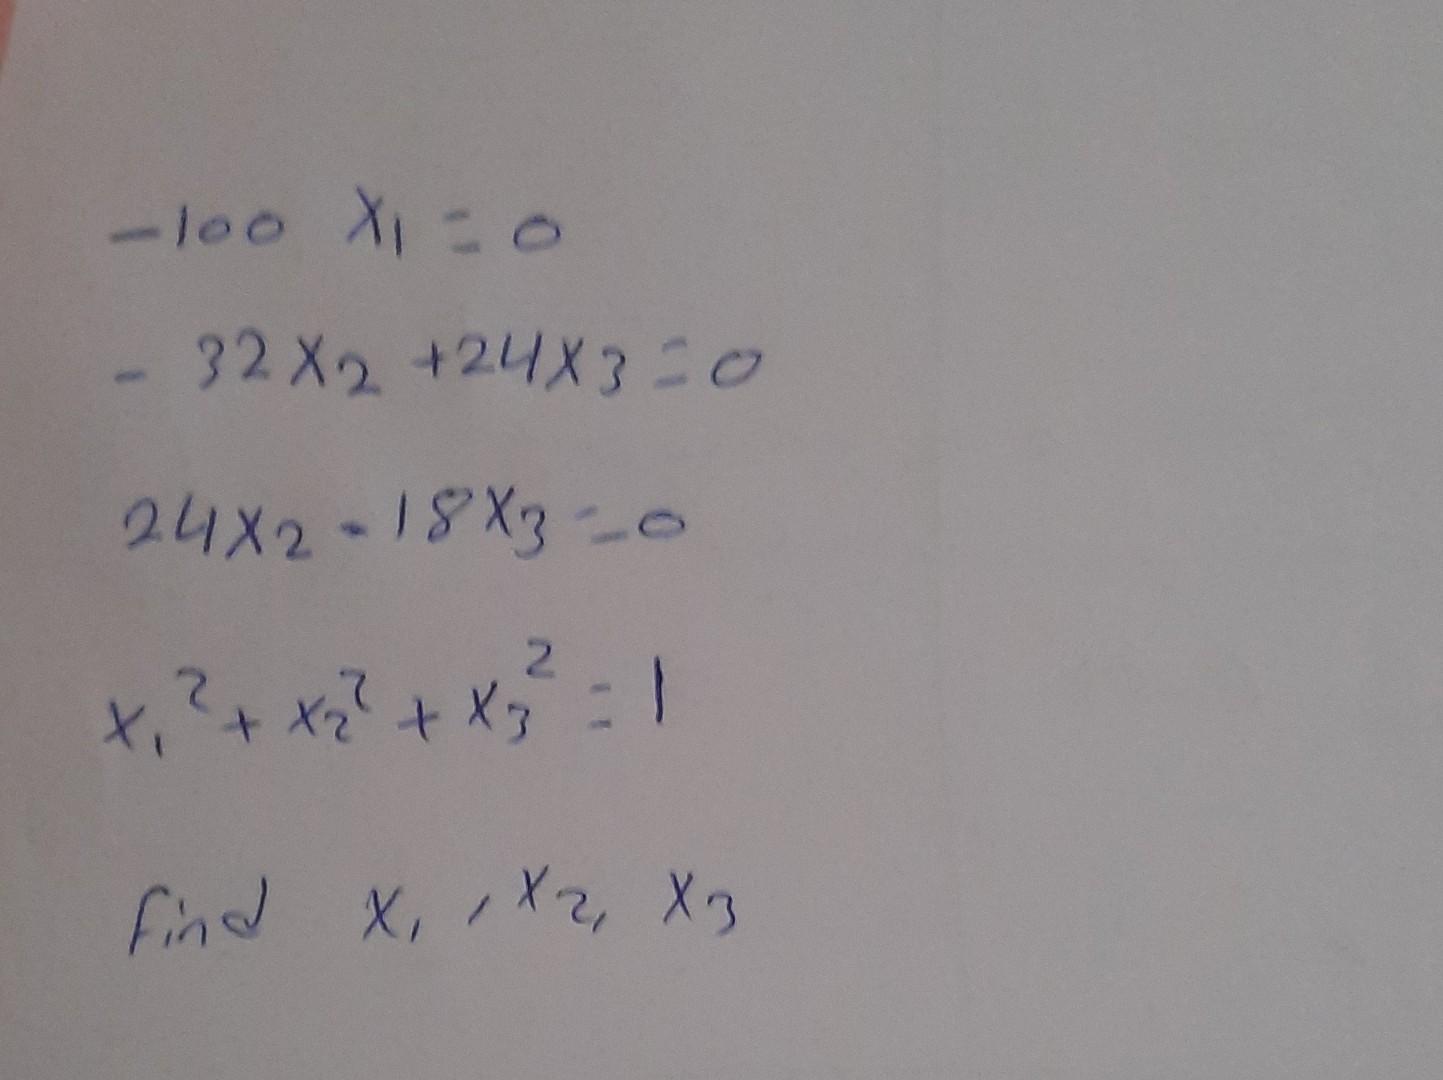 -100 x₁ = 0
- 32x₂ + 24x₃ = 0
24x₂ - 18x₃ = 0
x₁² + x₂² + x₃² = 1
Find x₁, x₂, x₃